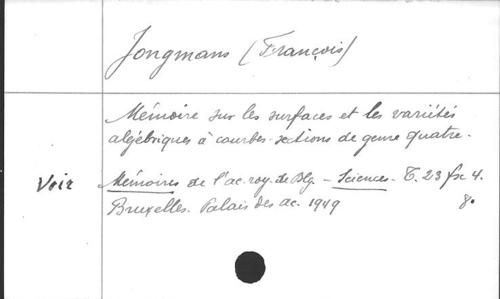 Jongmans (François)
Mémoire sur les surfaces et les variétés
algébriques à courbes-sections de genre quatre.
Voir Mémoires de l'ac. roy. de Blg. - Sciences. T. 23 fsc 4.
Bruxelles. Palais des ac. 1949 8.